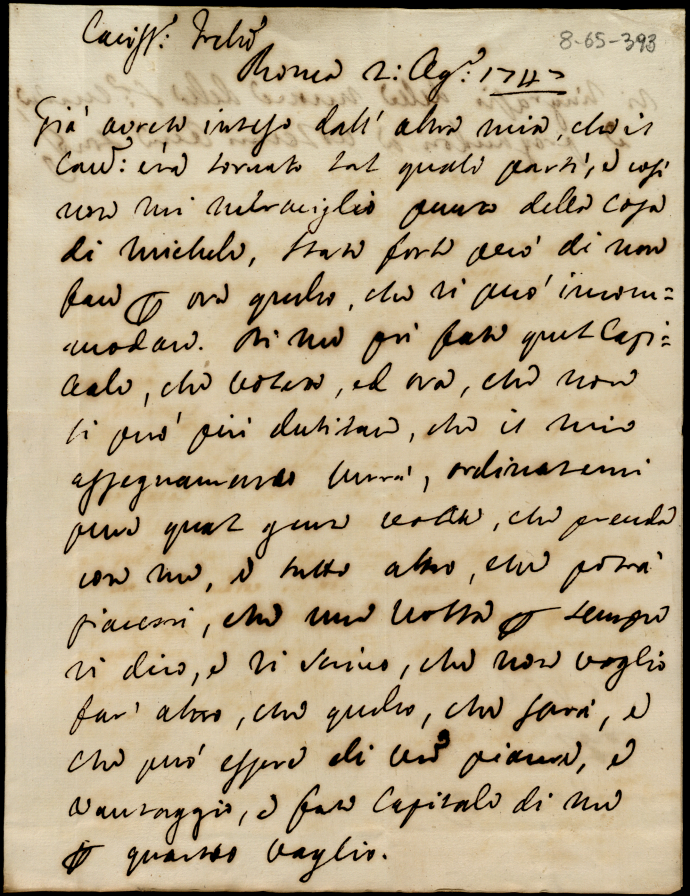 8-65-393
Cariss:mo Frello
Roma 2: Ag:to 1747
Già avrete inteso dall' altra mia, che il
Cav:re era tornato tal quale partì, e così
non mi meraviglio punto della cosa
di Michele, state forte però di non
fare ora quello, che vi può incom=
modare. Di me poi fate quel Capi=
tale, che volete, ed ora, che non
si può più dubitare, che il mio
assegnamento verrà, ordinatemi
pure qual genere volete, che prenda
con me, e tutto altro, che potrà
piacervi, che una volta sempre
vi dico, e vi scrivo, che non voglio
far' altro, che quello, che sarà, e
che può essere di vro piacere, e
vantaggio, e fate Capitale di me
quanto vaglio.